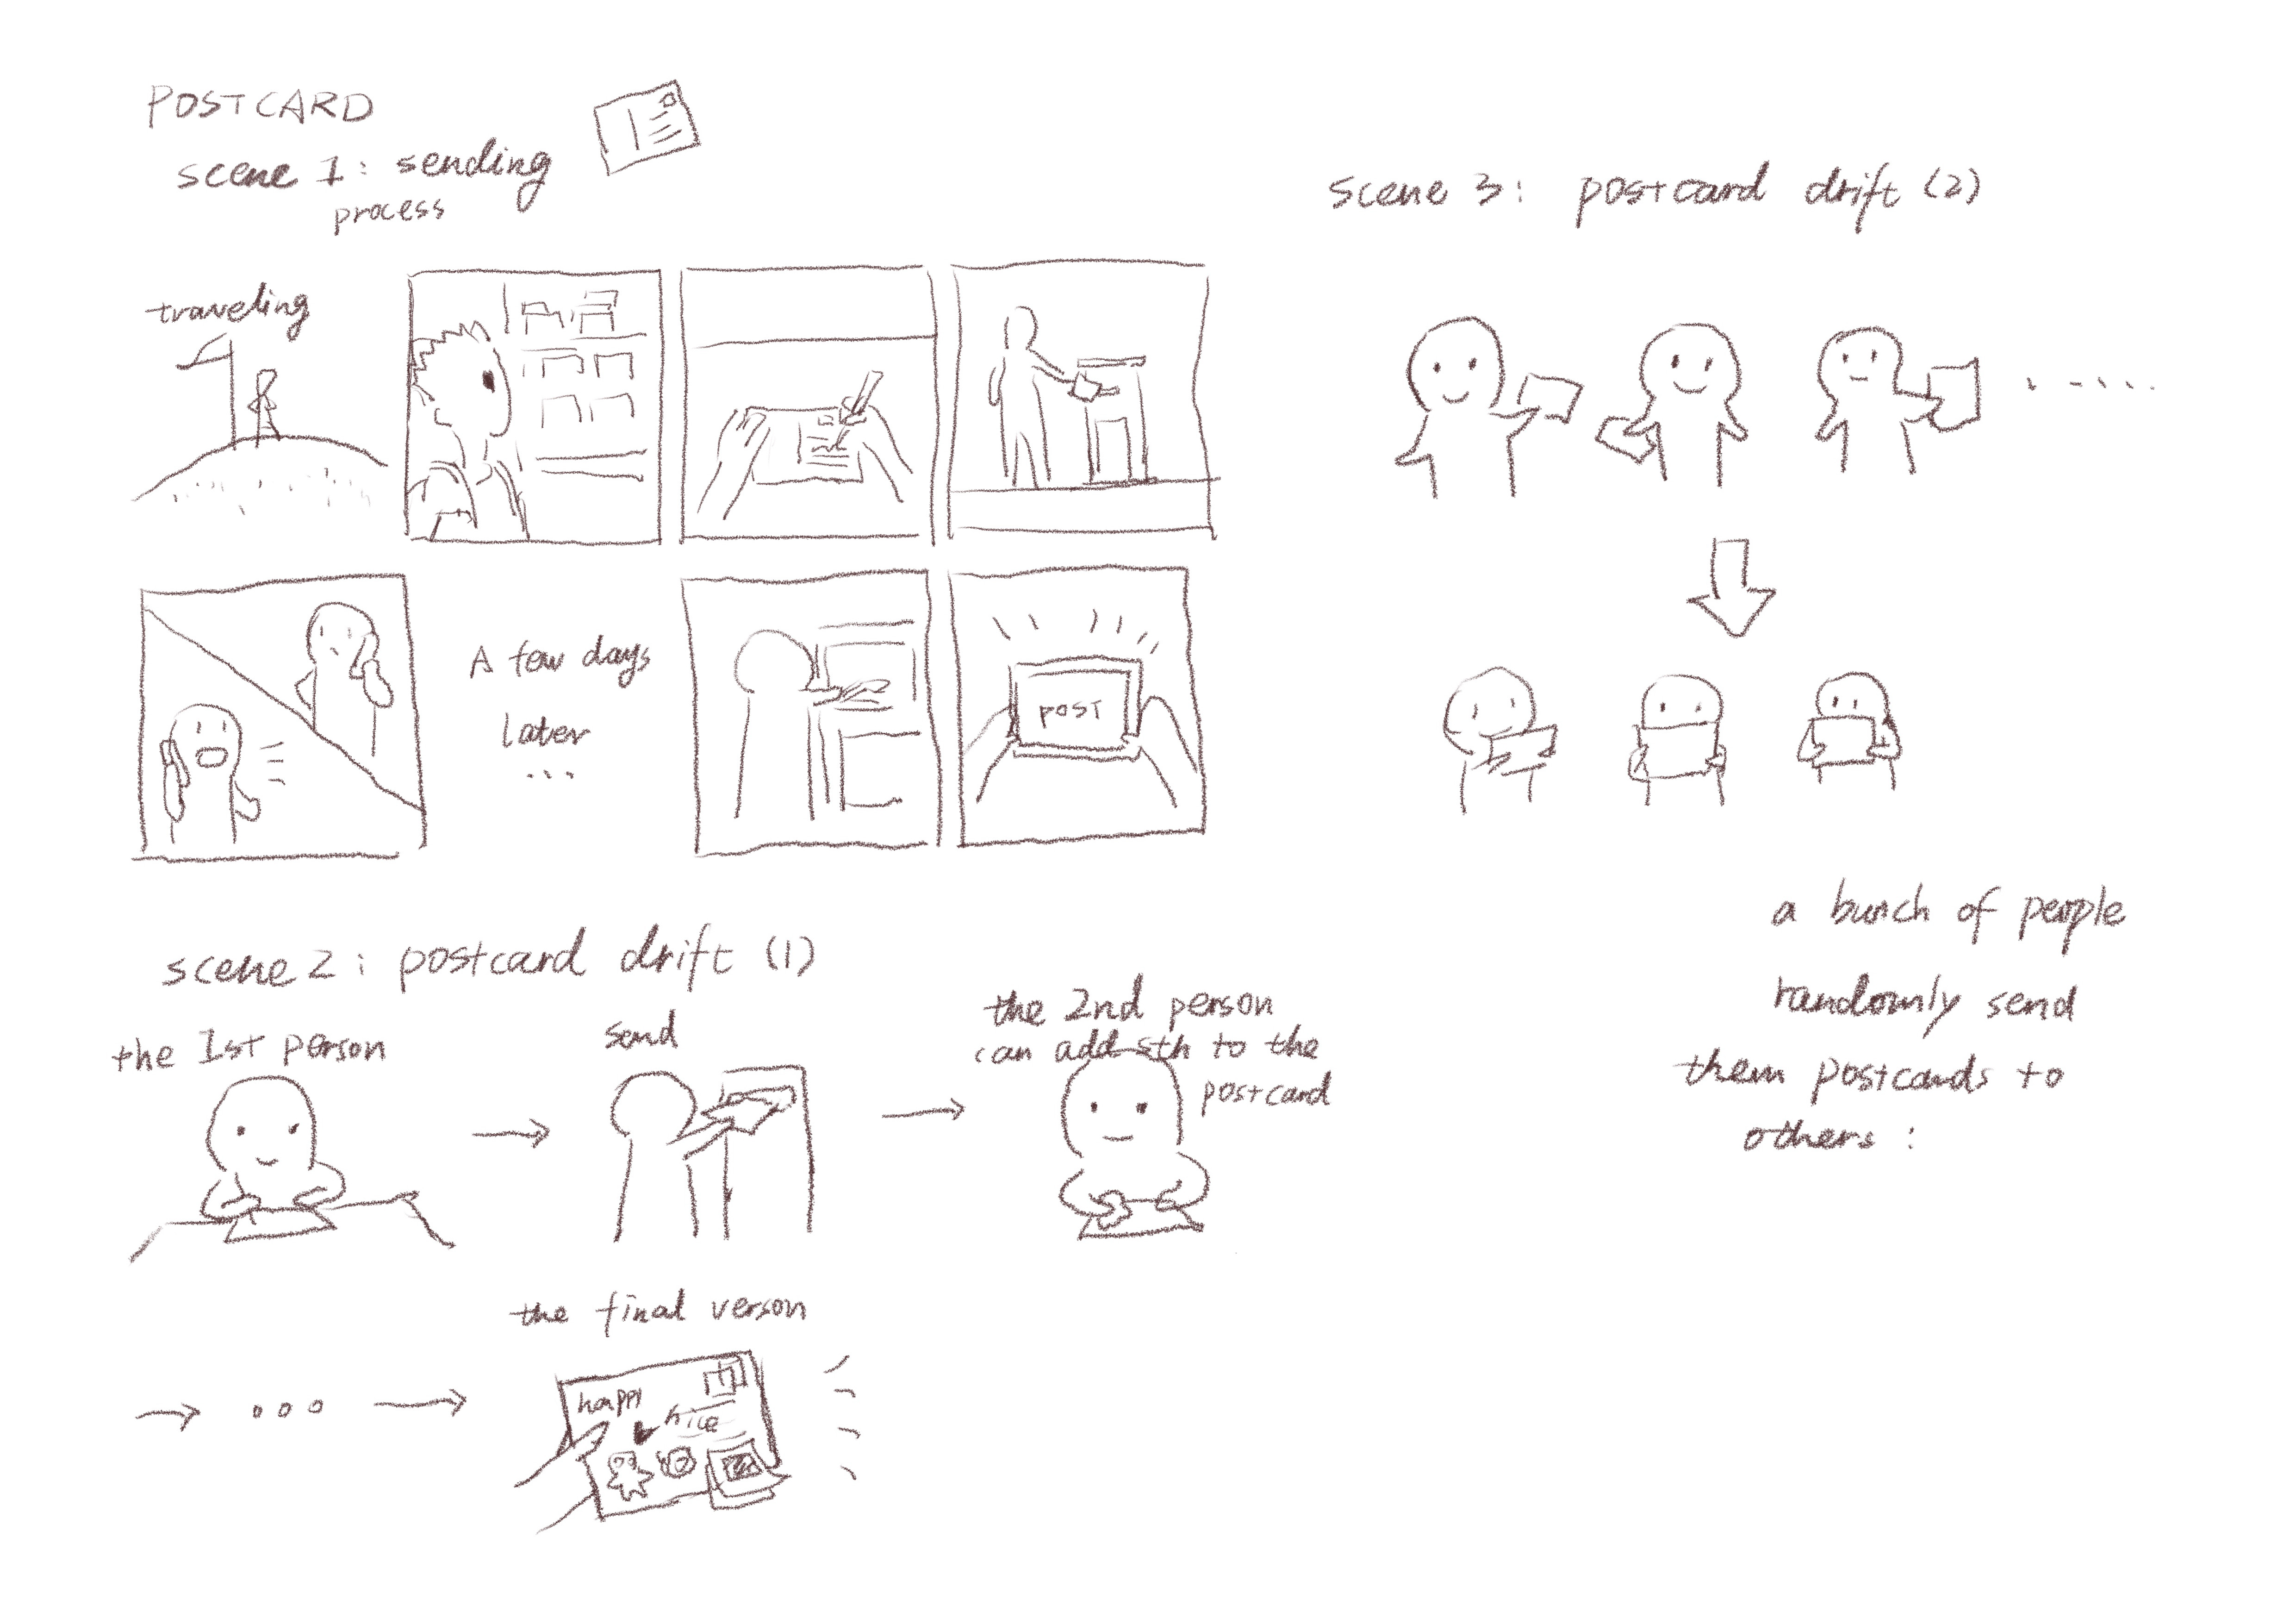 POSTCARD
scene 1: sending
process
traveling
A few days
later
...
POST
scene 2: postcard drift (1)
the 1st person
send
the 2nd person
can add sth to the
postcard
the final verson
happy
nice
scene 3: postcard drift (2)
a bunch of people
randomly send
them postcards to
others: